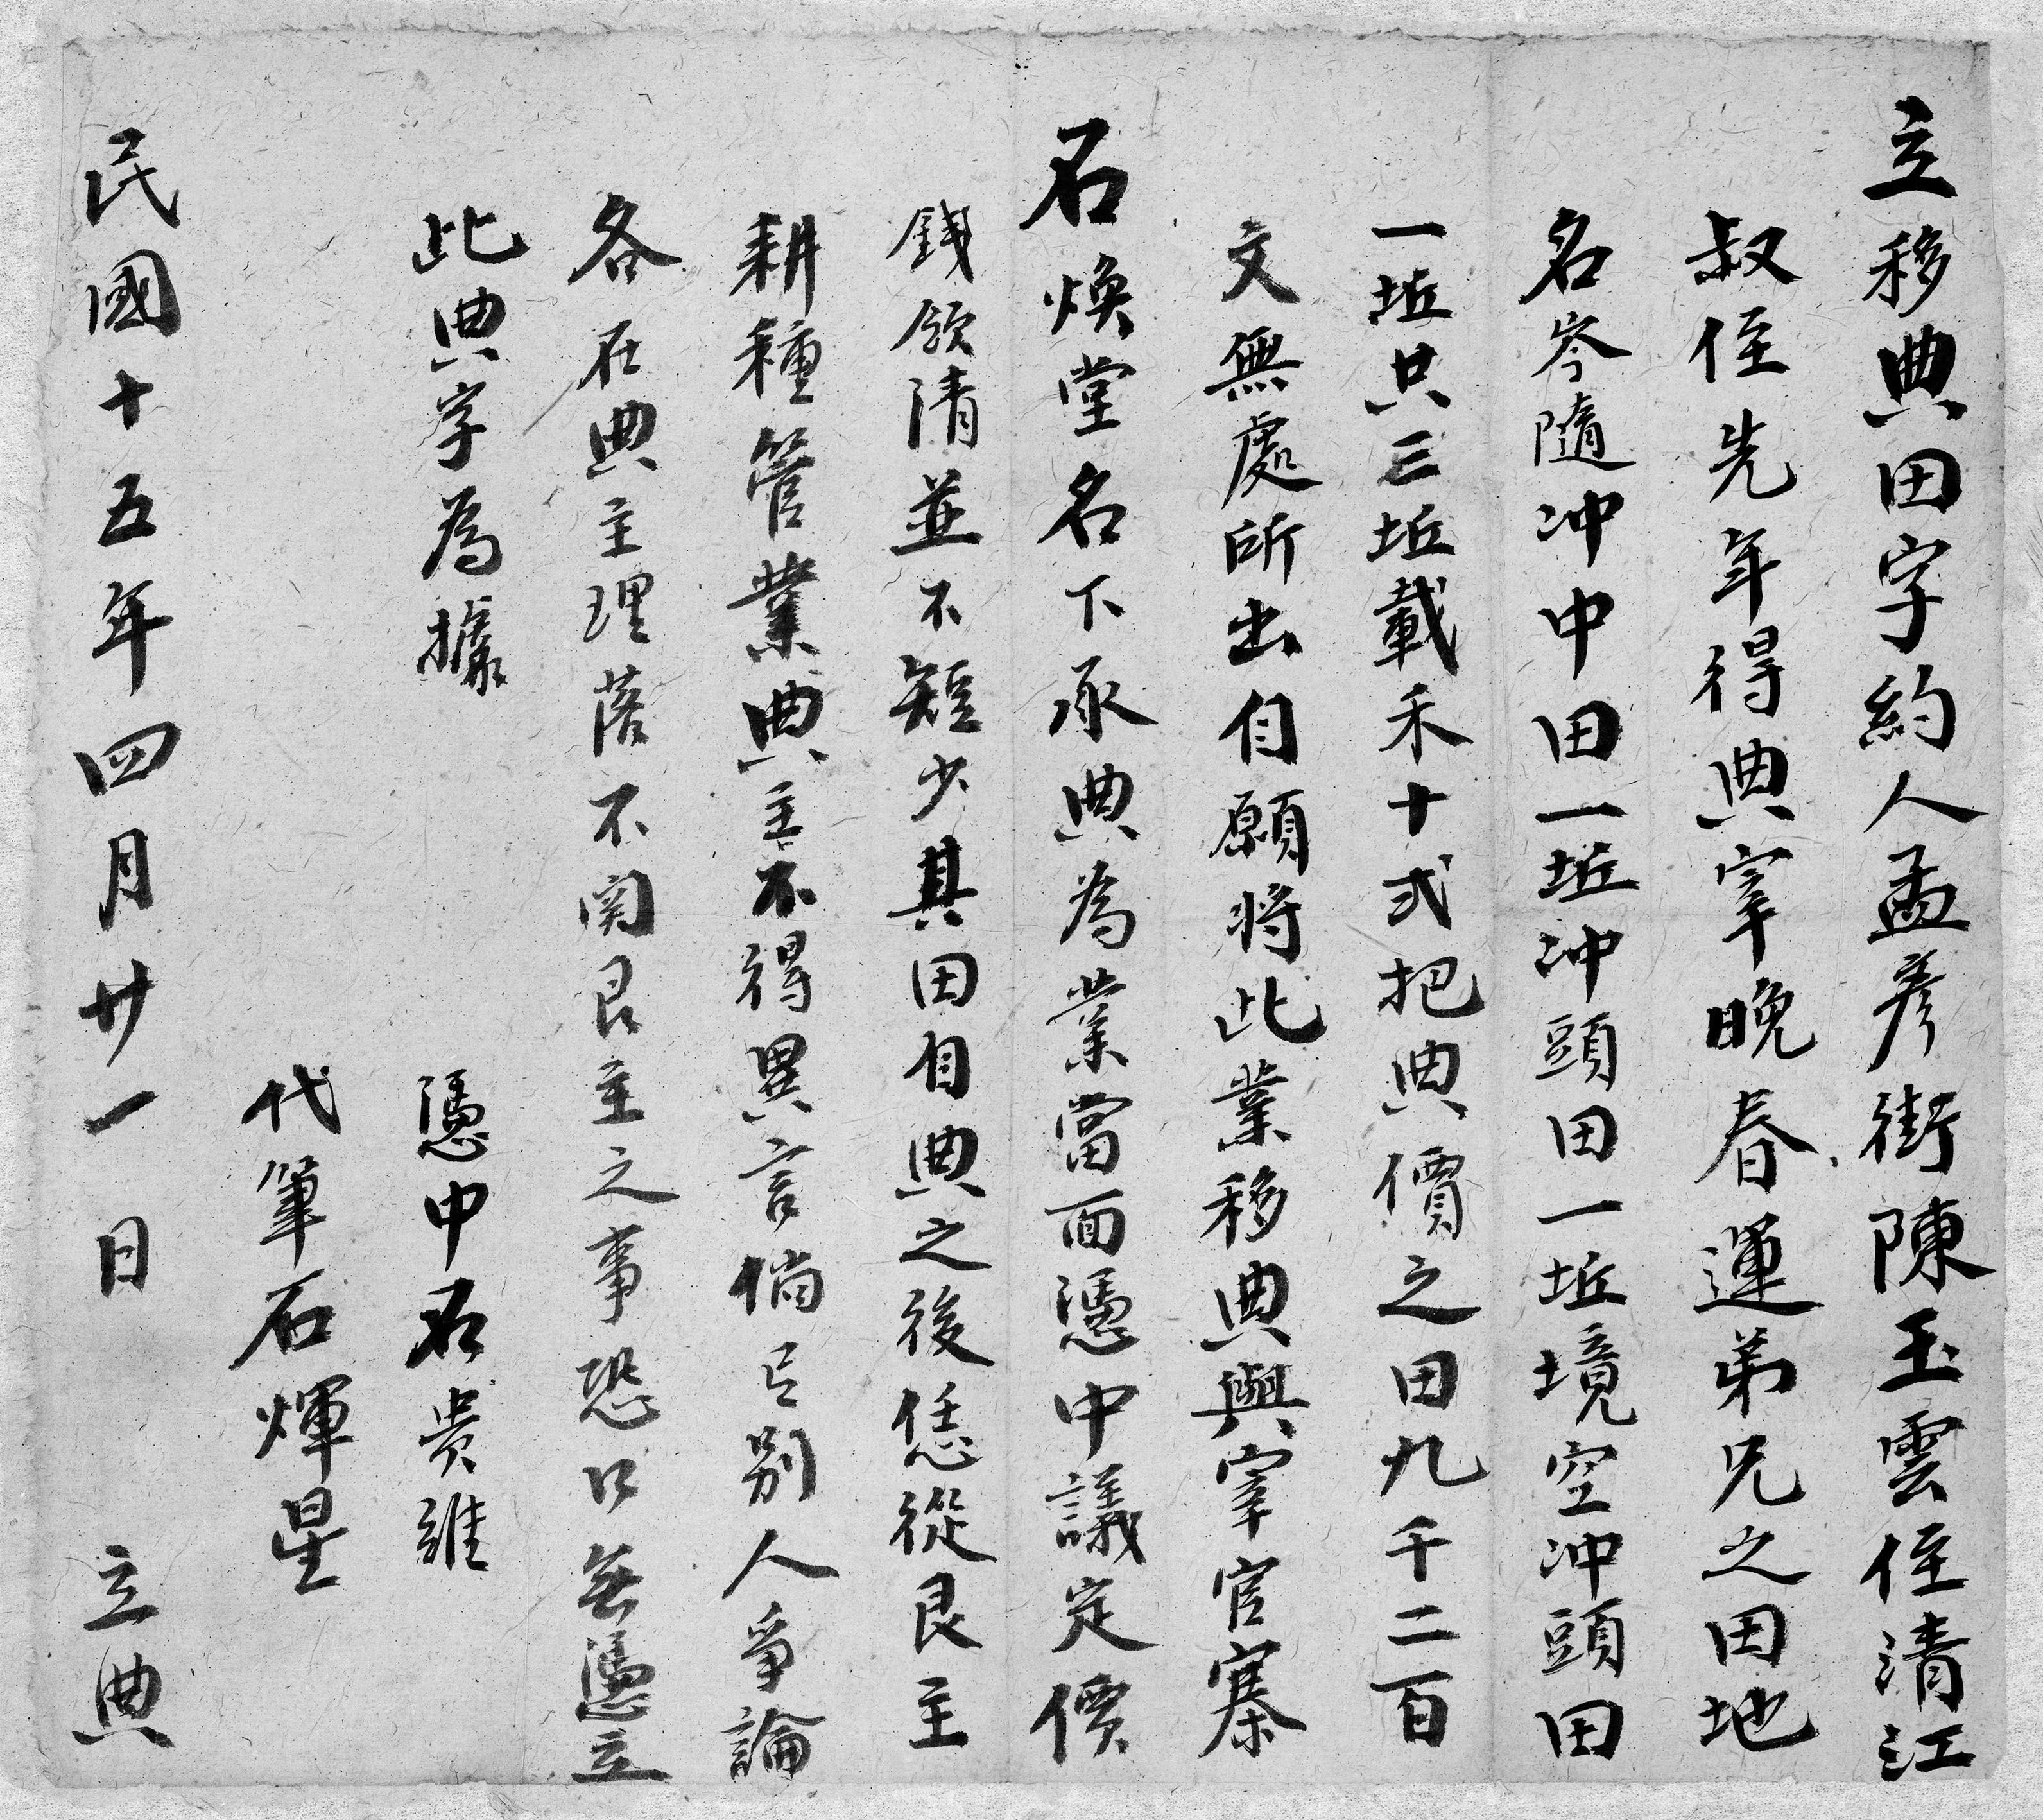 立移典田字約人孟彥街陳玉雲侄清江
叔侄先年得典宰晚春運弟兄之田地
名岑隨冲中田一坵冲頭田一坵境空冲頭田
一坵共三坵載禾十弍把典價之田九千二百
文無處所出自願將此業移典與宰官寨
石煥堂名下承典為業當面憑中議定價
錢領清並不短少其田自典之後恁從艮主
耕種管業典主不得異言倘有别人爭論
各在典主理落不関艮主之事恐口無憑立
此典字為據
憑中石貴維
代筆石煇星
民國十五年四月廿一日 立典